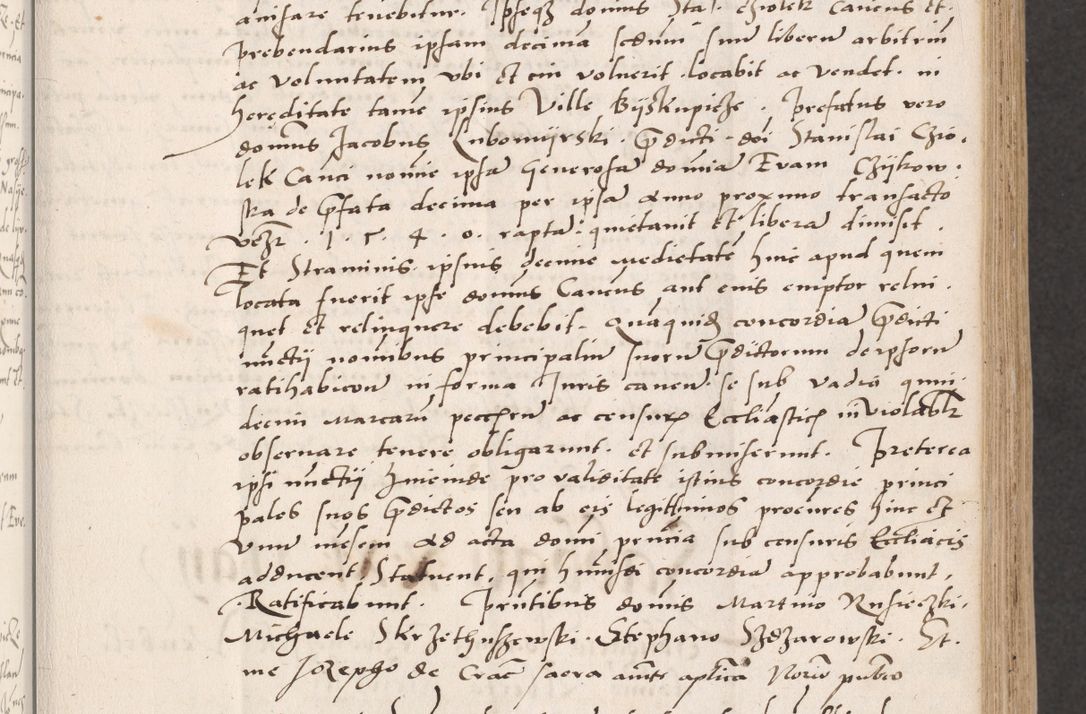 ansare tenebitur. Ipseqȝ domus Sta. Cziolek Cancus et.
prebendarius ipsam decima scdum suu liberu arbitriu
ac voluntatem vbi et cui voluerit locabit ac vendet. in
hereditate tame ipsius Ville Biskupicze. Prefatus vero
domus Jacobus Lubomijrski. Pdicti doi Stanislai Czio.
lek Canci nomie ipsa generosa domina Evam Czijkow.
ska de Pfata decima per ipsa Anno proximo transacto
1. 5. 4. 0. rapta quietauit et libera dimisit.
Et Straminis ipsius decime medietate hinc apud quem
locata fuerit ipse domus Cancus aut eius emptor relin.
quet et relinquere debebit. Quaquidȝ concordia Pdicti
nuctij nominibus principaliu suoru Pdictorum de ipsoru
ratihabicon in forma Juris cauen. se sub vadio quin.
decim marcaru pecc et censurȩ Eccliastice inviolablr
obseruare tenere obligarunt. et submiserunt. Preterea
ipsi nuctij Inuicinde pro validitate istius concordie princi
pales suos Pdictos seu ab eis legittimos procures hinc et
vnu mesem ad acta domi pncia sub censuris Eccliacis
adducent Statuent, qui hmusdi concordia approbabunt.
Ratificabunt. Pntibus domis Martino Rusieczki.
Michaele Skrzethuszewski. Stephano Szdzarowski. Et.
me Jozepho de Crac sacra aucte aplica Norio publico